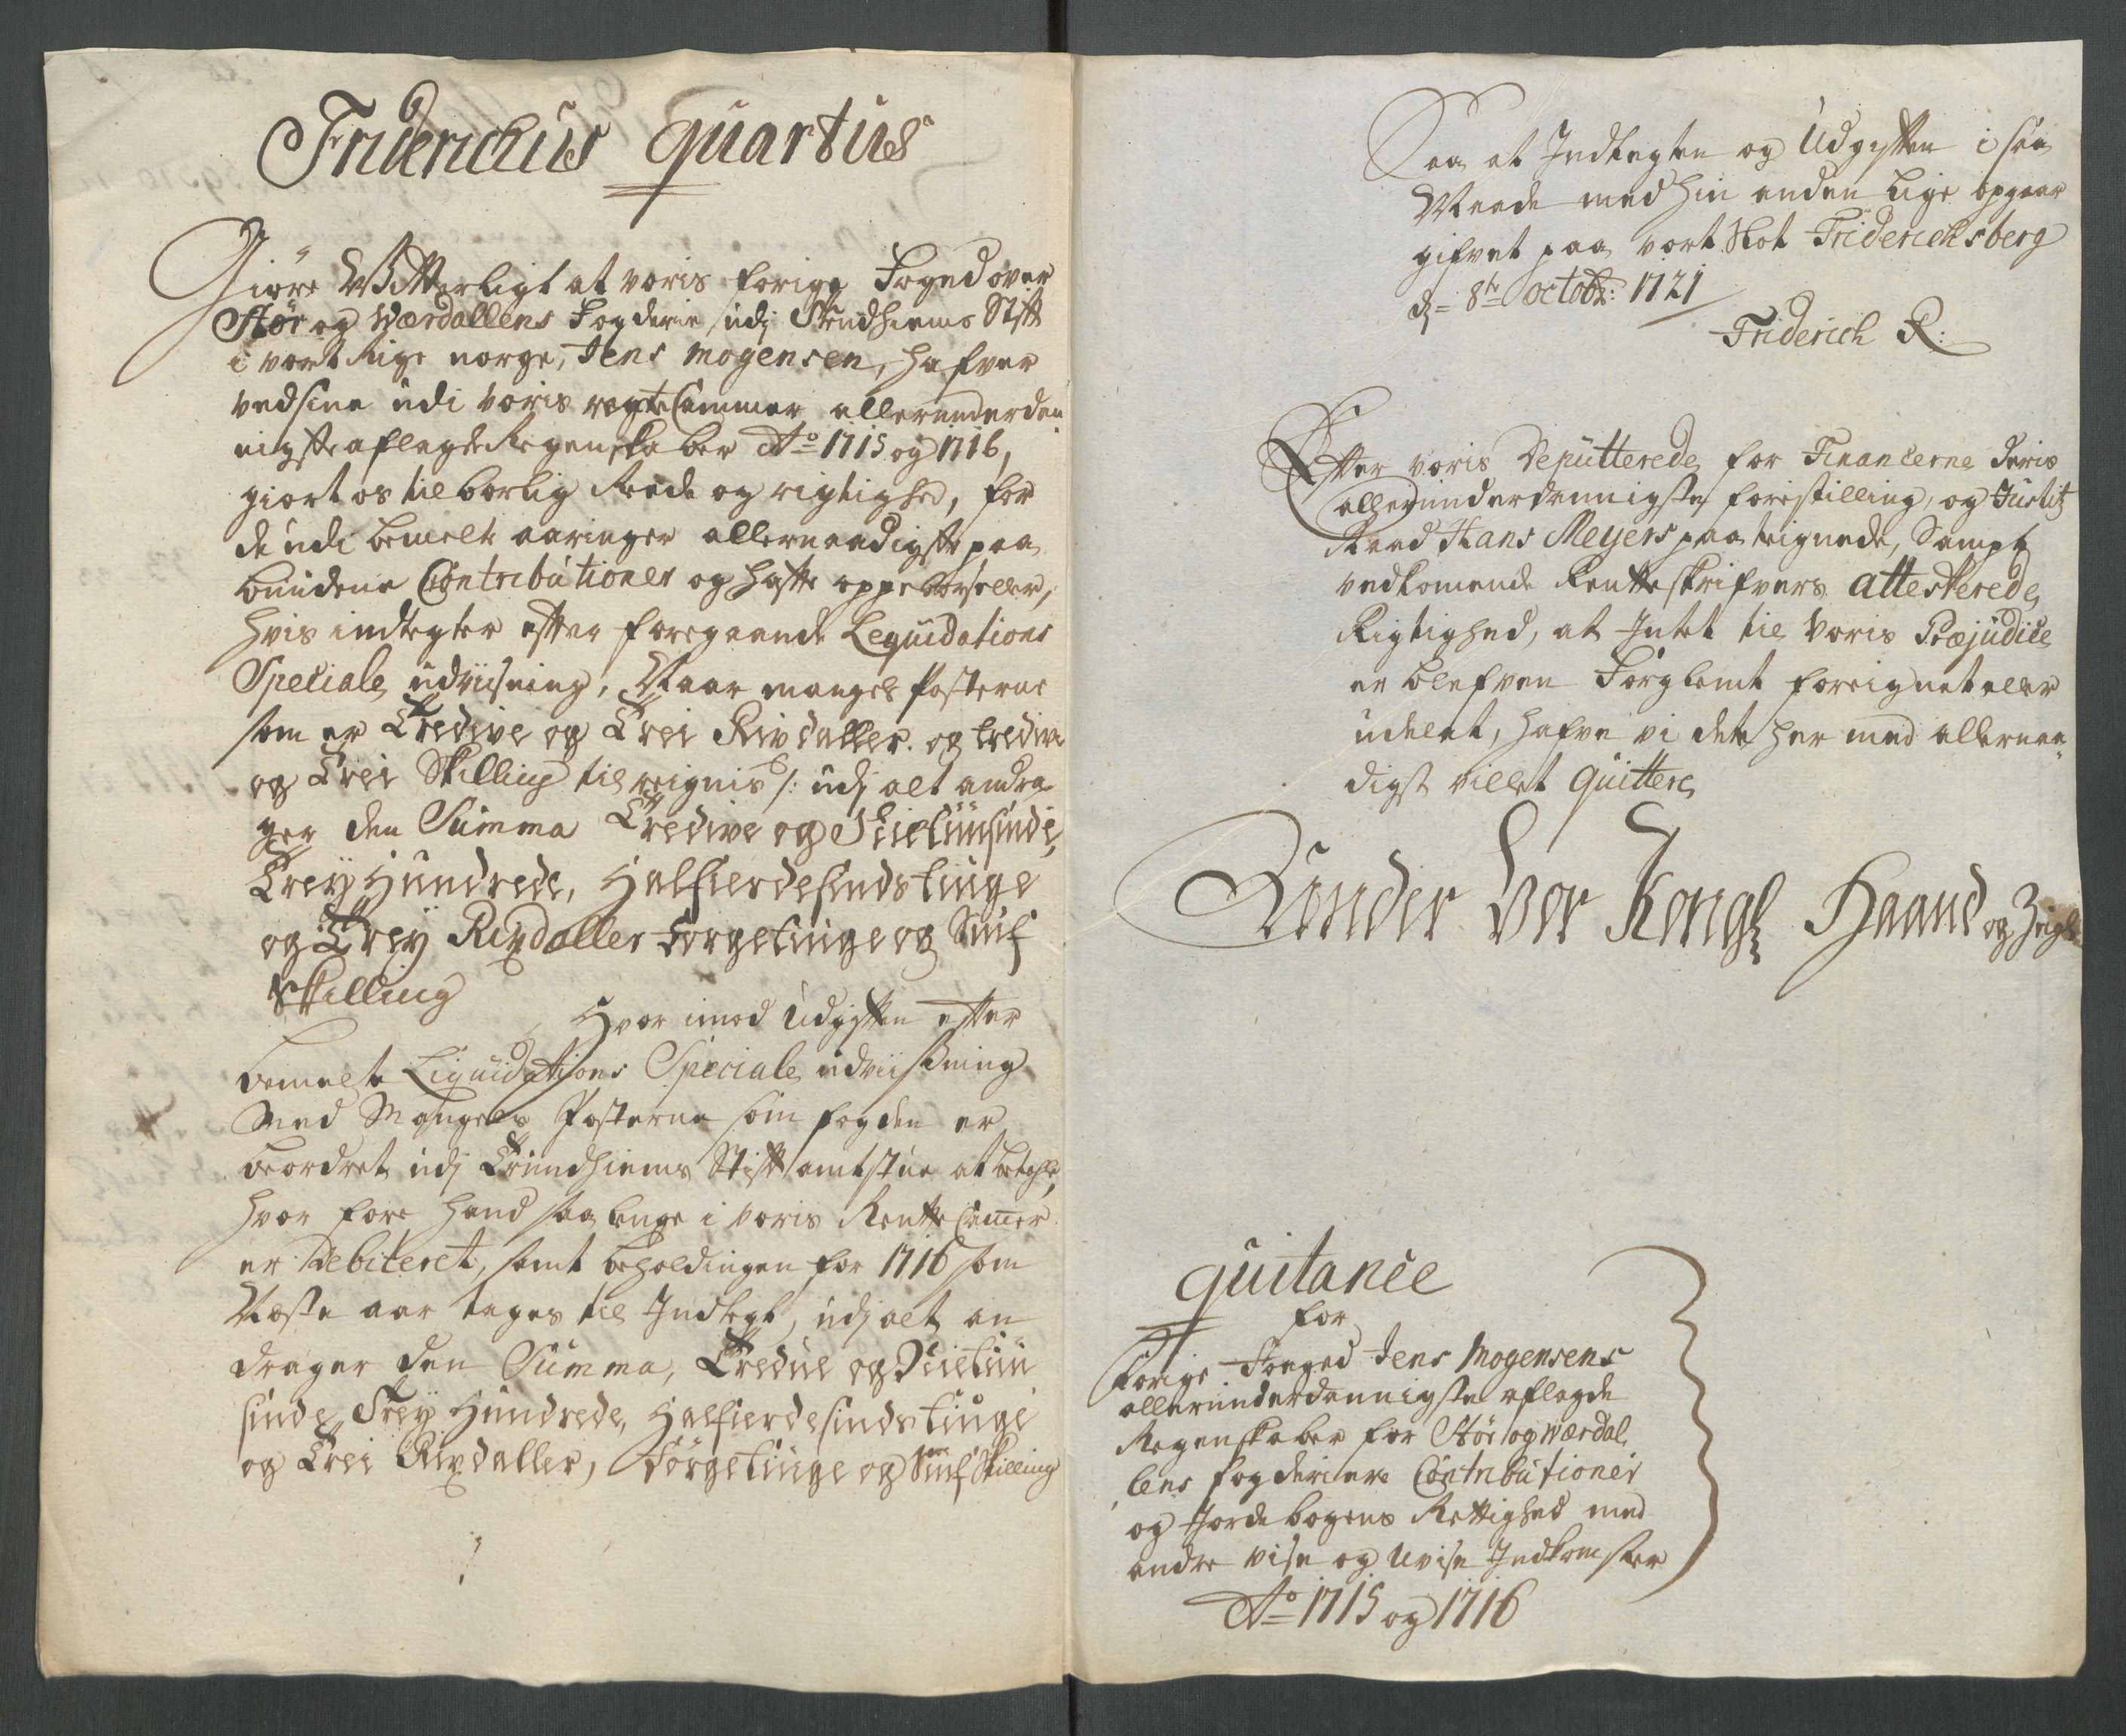 Fridericus quartus
Giøre Witterligt at voris forige Foged over
Stør og Værdallens Fogderie udj Trundhiems Stift
i vort Rige norge, Jens Mogensen, hafver
ved sine udi voris rente Cammer allerunderdan
nigste aflagde Regenskaber Ao 1715 og 1716,
giort os tilbørlig Rede og rigtighed, for
de udi bemelte aaringer allernaadigste paa
budene Contributioner og hafte oppebørseler,
hvis indtegter efter foregaaende Lequidations
Speciale udviisning, Naar mangels Posterne
som er Tredive og Trei Rixdaller og tredive
og Trei Skilling til reignis /: udj alt andra
ger den Summa Tredive og Siutuusinde,
Trey Hundrede, Halfierdesinds tiuge
og Trey Rixdaller førgetiuge og
Skilling
Hvor imod Udgiften efter
bemelte Liquidations Speciale udviisning
Med Mangels Posterne som fogden er
beordret udj Trundhiems Stiftamtstue at betahle,
hvor fore hand saa lenge i voris Rente Camer
er Debiteret, samt beholdingen for 1716 som
Næste aar tages til Indtegt, udj alt an
drager den Summa, Tredive og
sinde Trey Hundrede, Halfierdesinds tiuge
og Trei Rixdaller, førgetiuge og Skilling
Saa at Indtegten og Udgiften i saa
Maade med hin anden lige opgaar
gifvet paa vort Slot Friderichsberg
d= 8tr Octobr: 1721
Friderich R:
Efter voris Deputterede for Financerne deris
allerunderdannigste forestilling, og Justitz
Raad Hans Meyers paateignede, Sampt
vedkomende Renteskrifvers attesterede
Rigtighed, at Intet til Voris Præjudice
er blefven Forglemt foreignet eller
udelat, hafve vi dete her med allernaa
digst villet quittere
Under Vor Kongl Haand og Zeigl
quitance
for
forige Foeged Jens Mogensens
allerunderdannigste aflagde
Regenskaber for Stør og Værdal
lens fogderiers Contributioner
og Jordebogens Rettighed med
andre vise og Uvise Indkomster
Ao 1715 og 1716